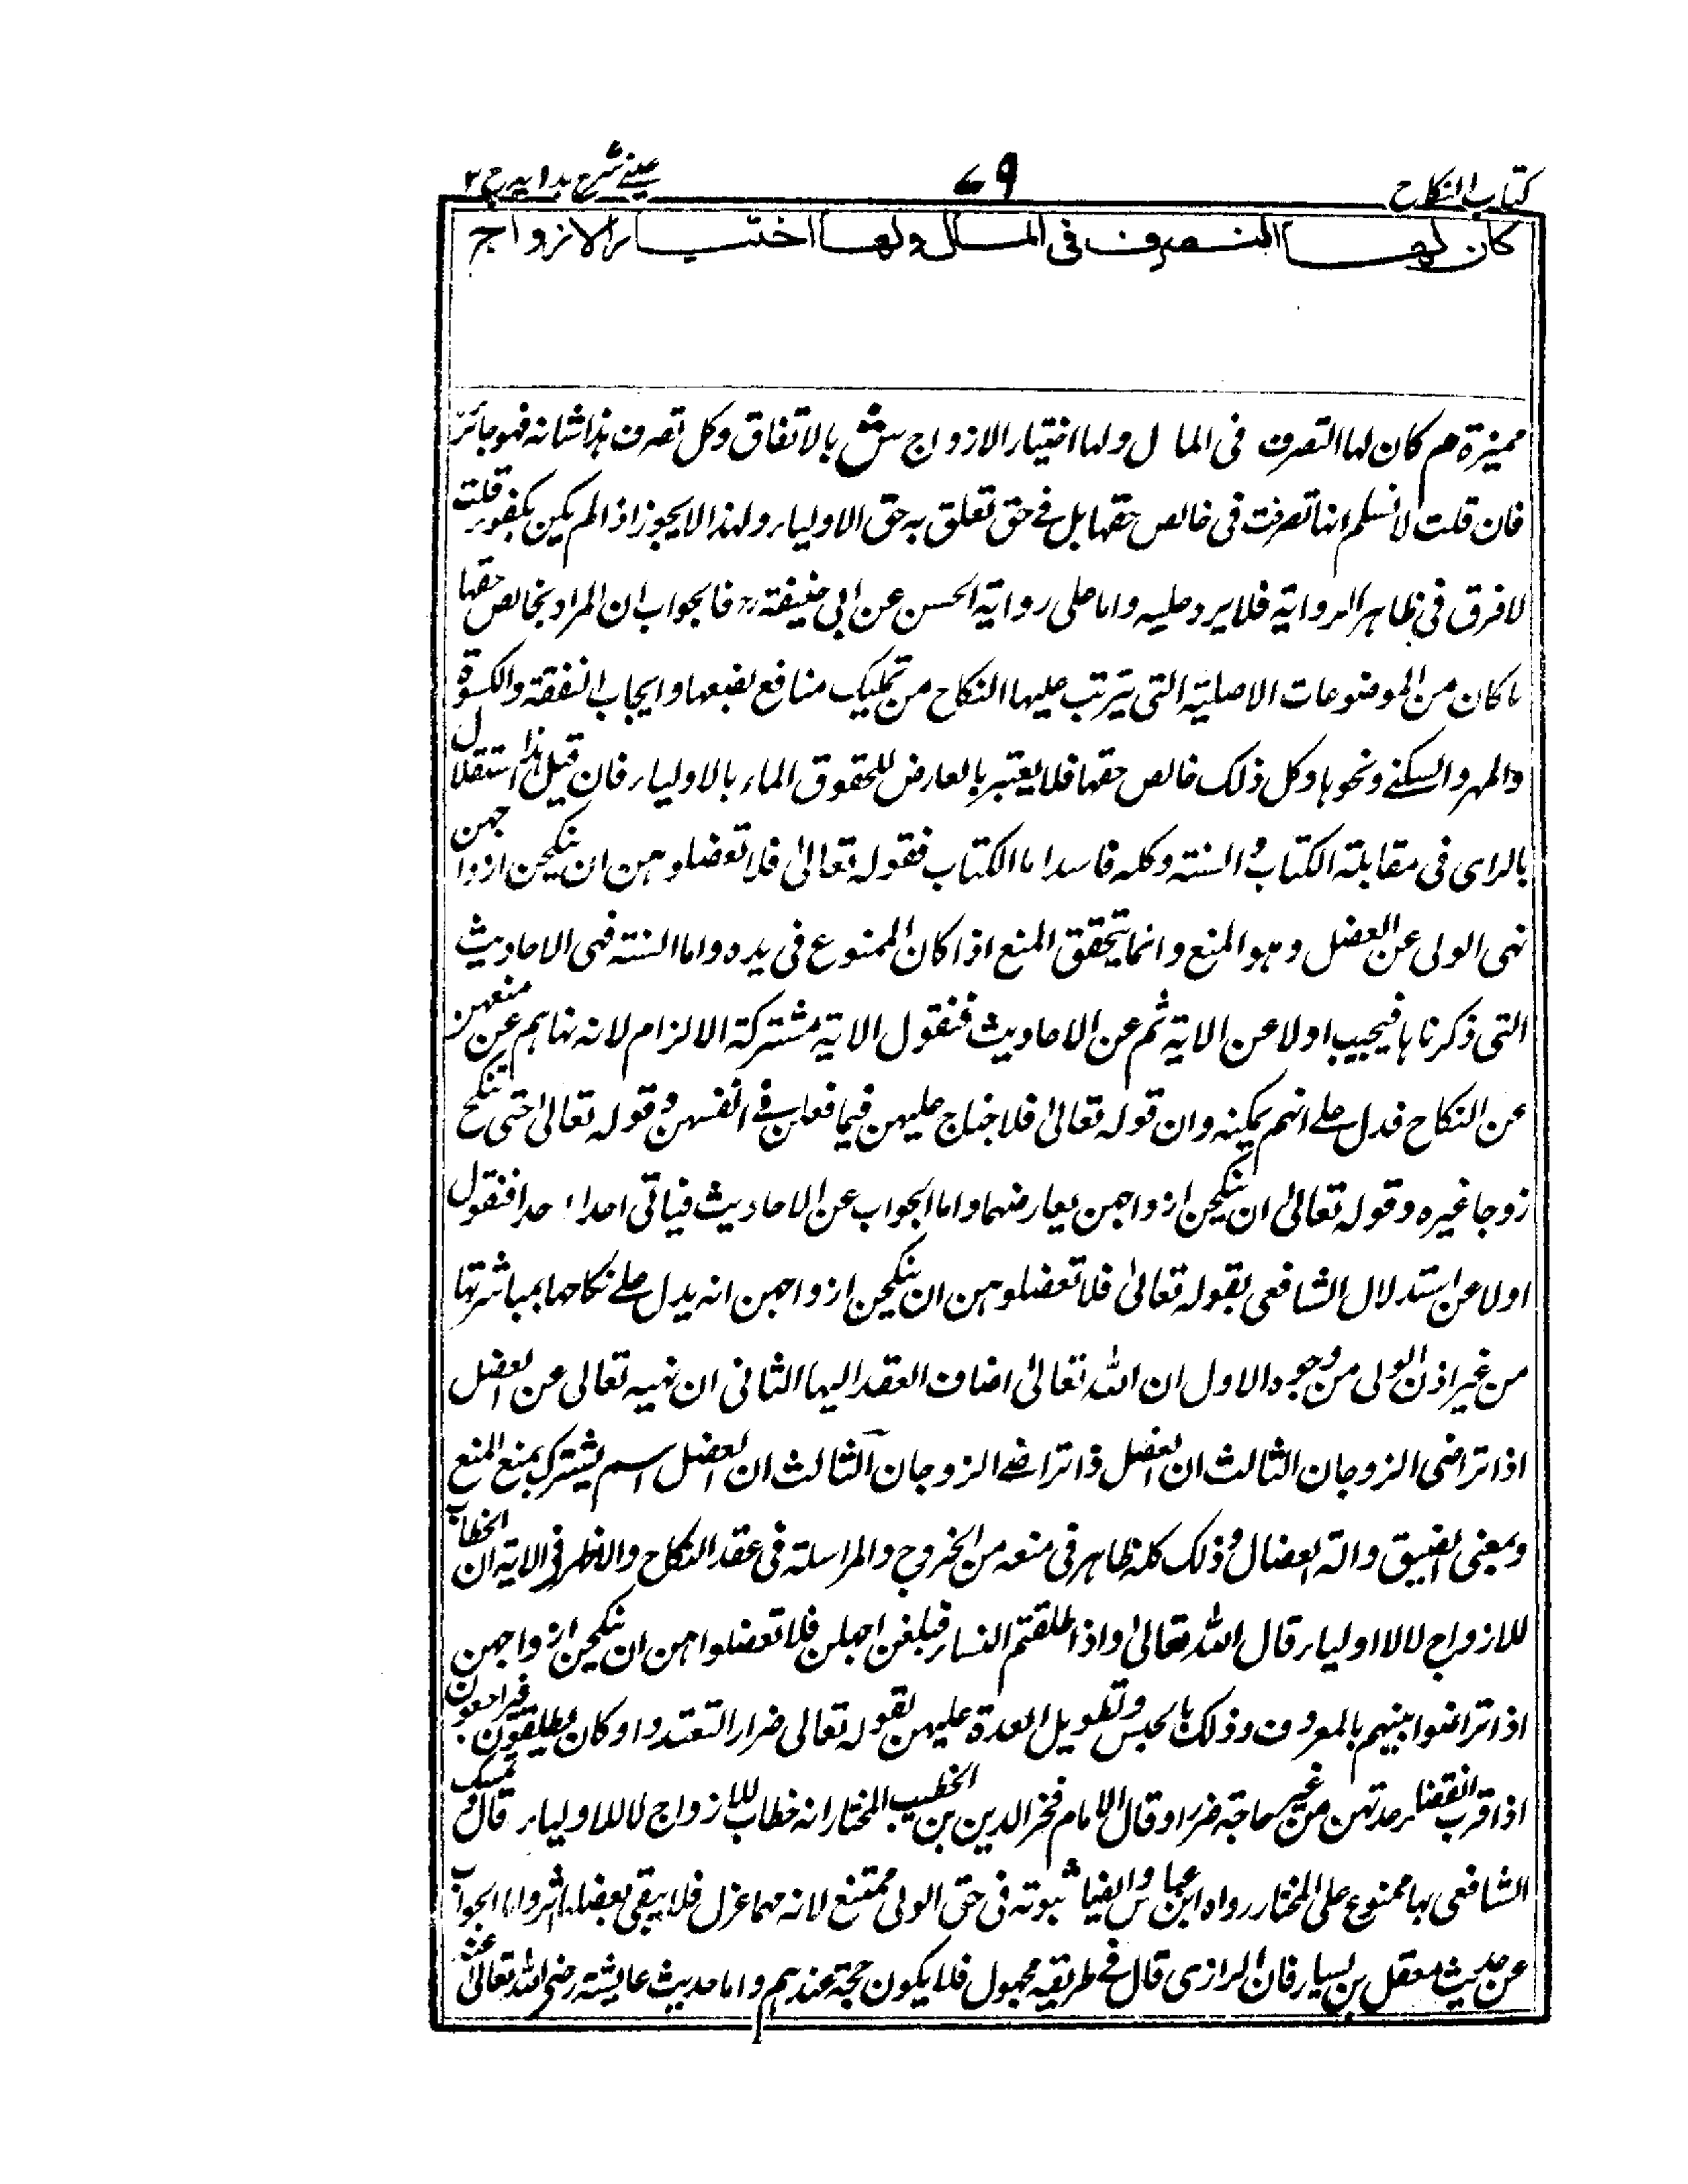 كتاب النكاح
٧٩
عينى شرح هدايه ج ٢
كان لها التصرف فى المال ولها اختيار الازواج
مميزة م كان لها التصرف فى المال ولها اختيار الازواج ش بالاتفاق وكل تصرف هذا شانه فهو جائز
فان قلت لا نسلم انها تصرفت فى خالص حقها بل فى حق تعلق به حق الاولياء ولهذا لا يجوز اذا لم يكن بكفور قلت
لا فرق فى ظاهر الرواية فلا يرد عليه واما على رواية الحسن عن ابى حنيفة رح فالجواب ان المراد بخالص حقها
ما كان من الموضوعات الاصلية التى يترتب عليها النكاح من تمليك منافع بضعها وايجاب النفقة والكسوة
والمهر والسكنى ونحوها وكل ذلك خالص حقها فلا يعتبر بالعارض للحقوق الماء بالاولياء فان قيل هذا استقلال
بالراى فى مقابلة الكتاب والسنة وكله فاسد اما الكتاب فقوله تعالى فلا تعضلوهن ان ينكحن ازواجهن
نهى الولى عن العضل وهو المنع وانما يتحقق المنع اذا كان الممنوع فى يده واما السنة فهى الاحاديث
التى ذكرناها فيجيب اولا عن الاية ثم عن الاحاديث فنقول الاية مشتركة الالزام لانه نهاهم عن منعهن
عن النكاح فدل على انهم يمكنه وان قوله تعالى فلا جناح عليهن فيما فعلن فى انفسهن وقوله تعالى حتى تنكح
زوجا غيره وقوله تعالى ان ينكحن ازواجهن يعارضهما واما الجواب عن الاحاديث فياتى احدا احدا فنقول
اولا عن استدلال الشافعى بقوله تعالى فلا تعضلوهن ان ينكحن ازواجهن انه يدل على نكاحها بمباشرتها
من غير اذن الولى من وجوه الاول ان الله تعالى اضاف العقد اليها الثانى ان نهيه تعالى عن العضل
اذا تراضى الزوجان الثالث ان العضل ذا تراضى الزوجان الثالث ان العضل اسم يشترك بمنع المنع
وبمعنى الضيق والة العضال وذلك كله ظاهر فى منعه من الخروج والمراسلة فى عقد النكاح والاظهر فى الاية ان الخطاب
للازواج لا لاولياء قال الله تعالى واذا طلقتم النساء فبلغن اجلهن فلا تعضلوا هن ان ينكحن ازواجهن
اذا تراضوا بينهم بالمعروف وذلك بالحبس وتطويل العدة عليهن لقوله تعالى ضرارا لتعتدوا وكان يطلقون فيراجعون
اذا قرب انقضاء عدتهن من غير حاجة ضررا وقال الامام فخر الدين بن الخطيب المختار انه خطاب للازواج لا للاولياء قال وتمسك
الشافعى بها ممنوع على المختار رواه ابن عباس وايضا ثبوته فى حق الولى ممتنع لانه مهما عزل فلا يبقى بعضله اثر واما الجواب
عن حديث معقل بن يسار فان الرازى قال فى طريقه مجهول فلا يكون حجة عندهم واما حديث عايشة رضى الله تعالى عنها